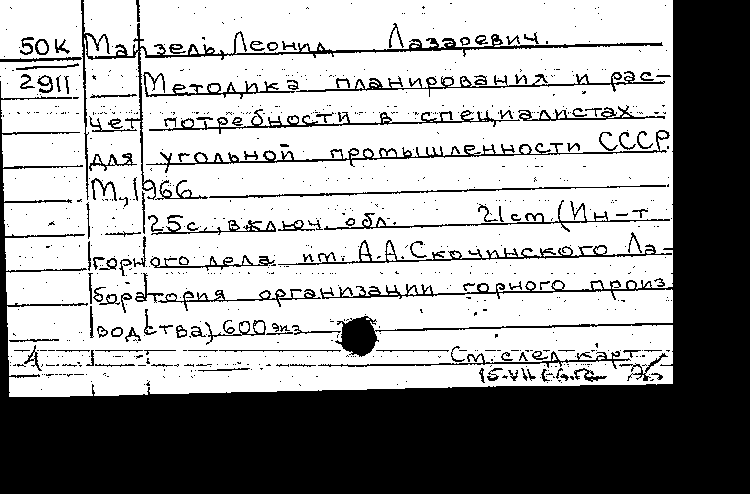 50К Майзель, Леонид Лазаревич.
2911 Методика планирования и рас-
чет потребности в специалистах
для угольной промышленности СССР.
М., 1966
25с., включ. обл. 21cm (Ин-т
горного дела им. А.А.Скочинского Ла-
боратория организации горного произ
водства) 600экз
А См. след. карт.